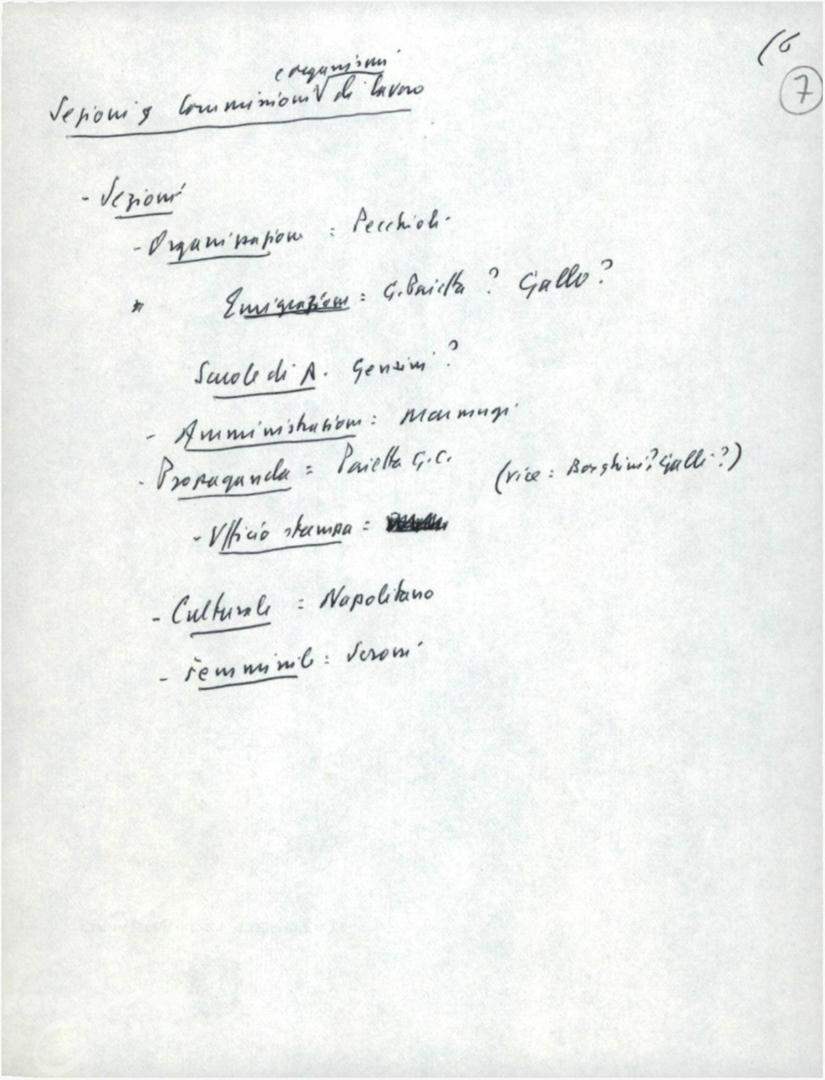 (6
7
e organismi
Sezioni, Commissioni V di lavoro
- Sezioni
- Organizzazione : Pecchioli
" Emigrazione : G. Pajetta ? Gallo ?
Scuole di P. Gensini ?
- Amministrazione : Marmugi
- Propaganda = Pajetta G.C. (vice : Borghini? Galli ?)
- Ufficio stampa :
- Culturale : Napolitano
- Femminile : Seroni